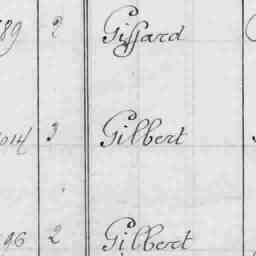 89 2 Giffard
014 3 Gilbert
96 2 Gilbert